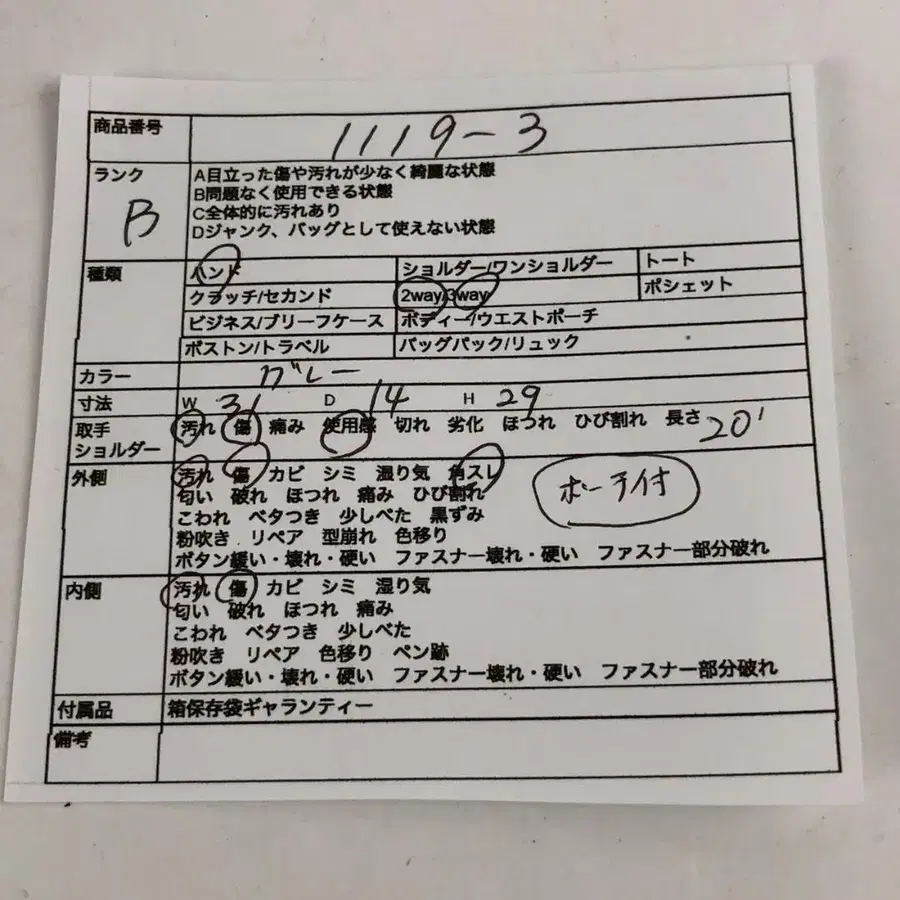 商品番号 1119-3
ランク B
A目立った傷や汚れが少なく綺麗な状態
B問題なく使用できる状態
C全体的に汚れあり
Dジャンク、バッグとして使えない状態
種類 ハンド ショルダー/ワンショルダー トート
クラッチ/セカンド 2way/3way ポシェット
ビジネス/ブリーフケース ボディー/ウエストポーチ
ボストン/トラベル バッグパック/リュック
カラー グレー
寸法 W 31 D 14 H 29
取手 汚れ 傷 痛み 使用感 切れ 劣化 ほつれ ひび割れ 長さ 20
ショルダー
外側 汚れ 傷 カビ シミ 湿り気 角スレ
匂い 破れ ほつれ 痛み ひび割れ
ポーチ付
こわれ ベタつき 少しべた 黒ずみ
粉吹き リペア 型崩れ 色移り
ボタン緩い・壊れ・硬い ファスナー壊れ・硬い ファスナー部分破れ
内側 汚れ 傷 カビ シミ 湿り気
匂い 破れ ほつれ 痛み
こわれ ベタつき 少しべた
粉吹き リペア 色移り ペン跡
ボタン緩い・壊れ・硬い ファスナー壊れ・硬い ファスナー部分破れ
付属品 箱保存袋ギャランティー
備考